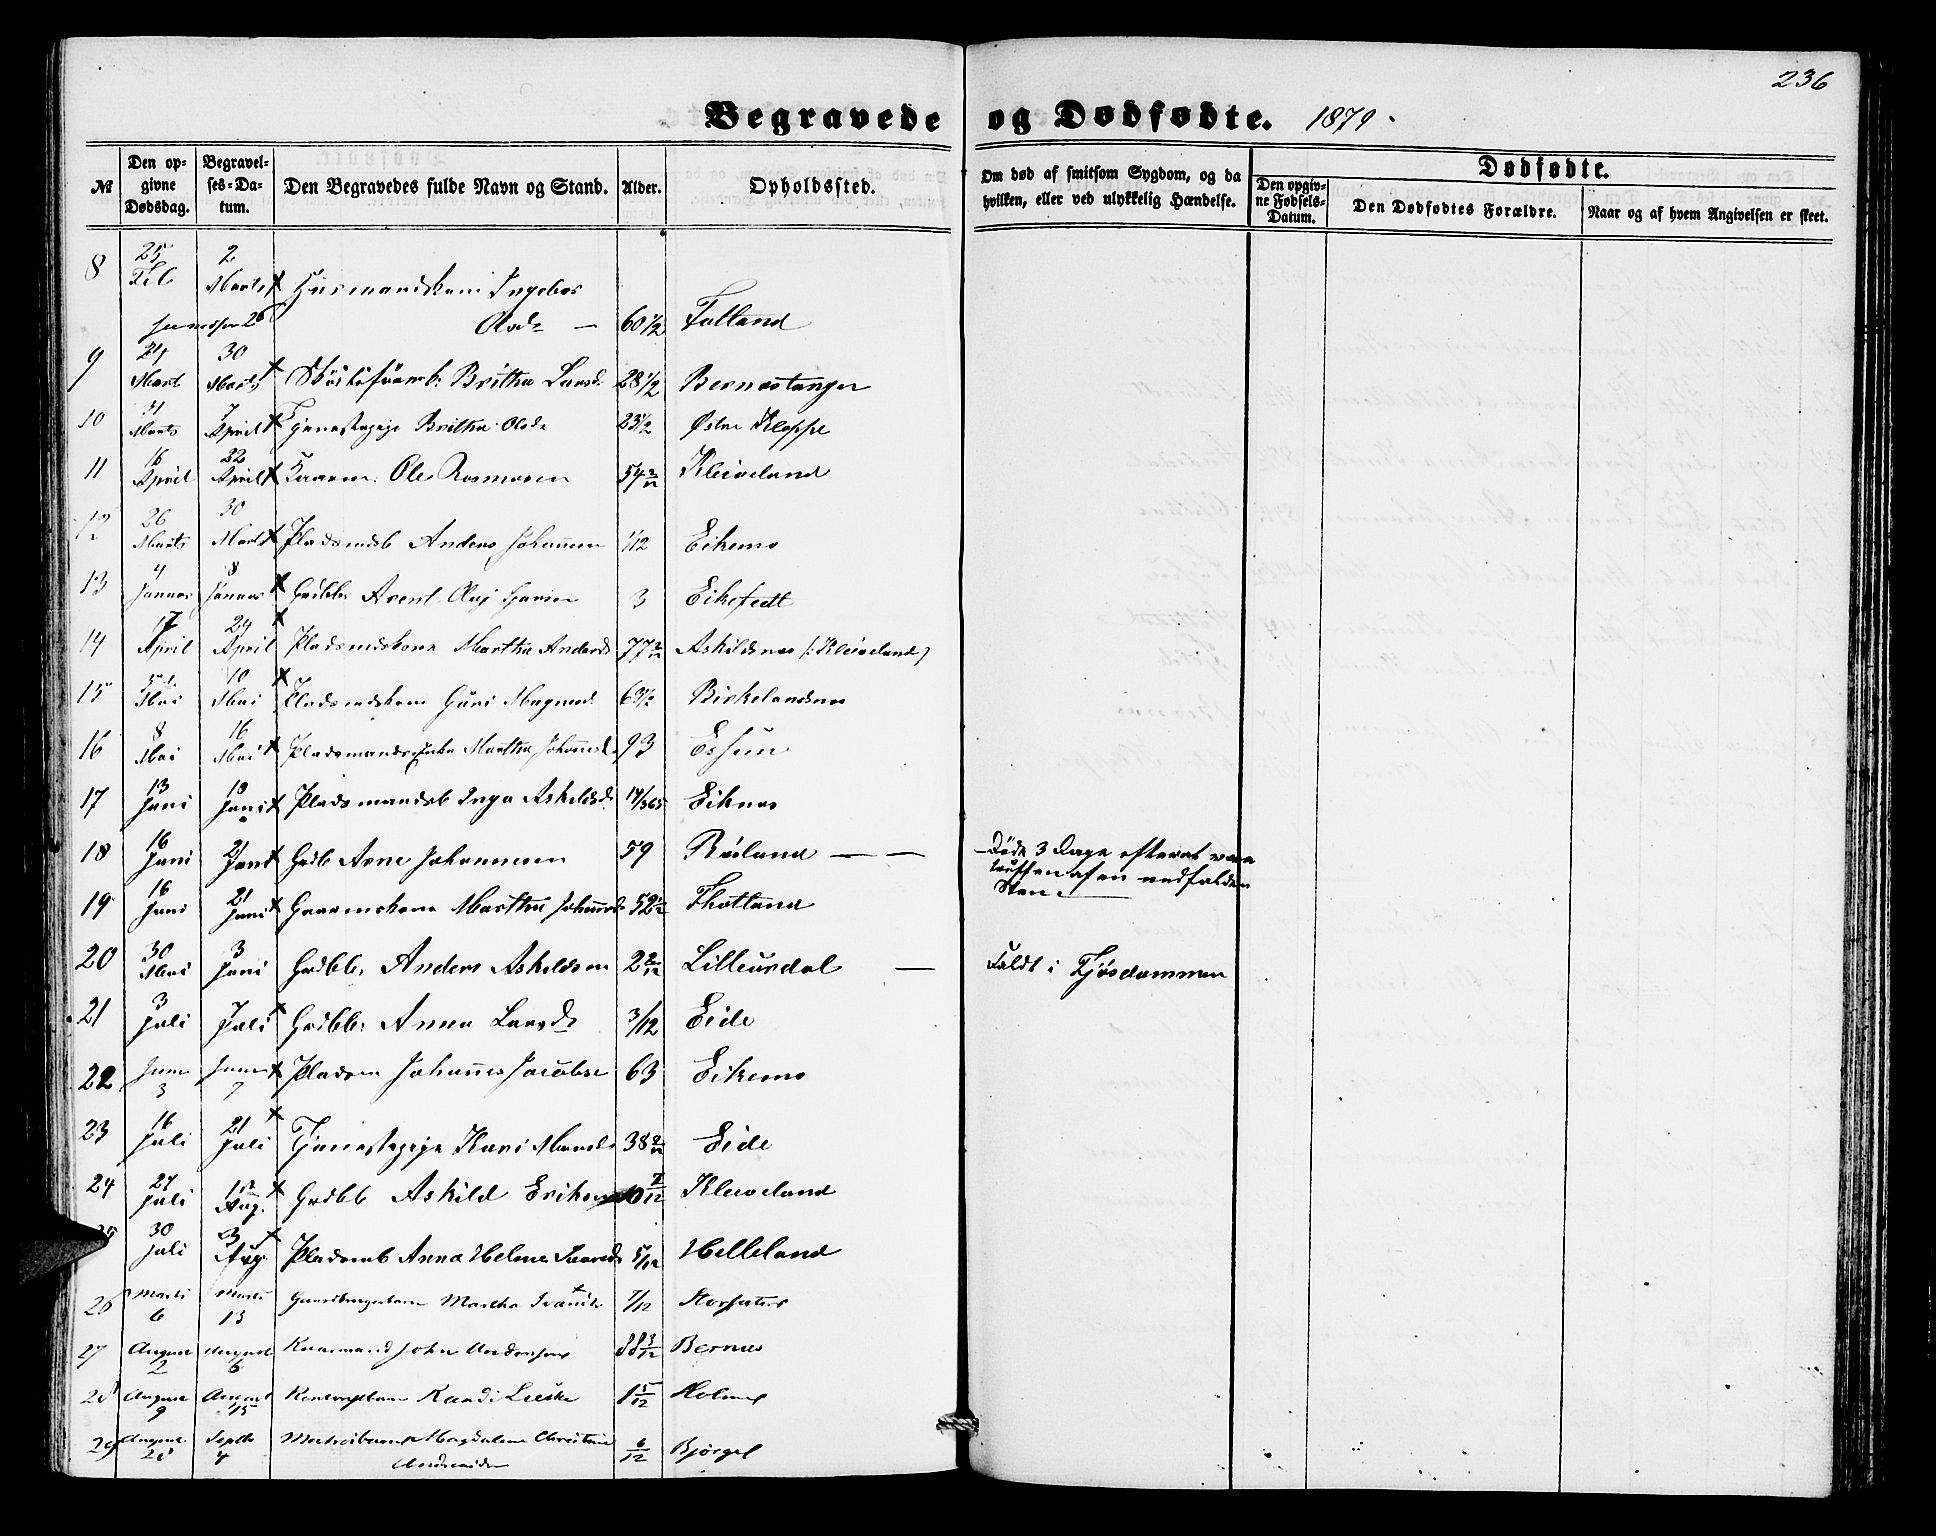 236
Begravede og Dødfødte. 1879.
№
Den opgivne Dødsdag.
Begravelses-Datum.
Den Begravedes fulde Navn og Stand.
Alder.
Opholdssted.
Om død af smitsom Sygdom, og da hvilken, eller ved ulykkelig Hændelse.
Dødfødte.
Den opgivne Fødsels-Datum.
Den Dødfødtes Forældre.
Naar og af hvem Angivelsen er skeet.
8 25 Feb 2 Marts Husmandskone Ingebor
Olsdr — 60 1/2 Falland
9 24 Mart 30 Marts Britha Larsd. 28 1/2 Bernestangen
10 31 Marts 7 April Tjenestepige Britha Olsdr 23 1/2 Østre Kleppe
11 16 April 22 April Ole Rasmusen 54 2/12 Kleiveland
12 26 Marts 30 Marts Pladsmdsb Anders Johannesen 1/12 Eikemo
13 4 Januar 8 Januar Grdbb. Olaj 3 Eikefedt
14 17 April 24 April Pladsmdskone Martha Andersd 77 2/12 Askildsnes (: Kleiveland)
15 5 Mai 10 Mai Pladsmdskone Guri Magnusd. 63 1/2 Birkelandsnes
16 8 Mai 16 Mai Pladsmandsenke Martha Johannesd. 93
17 13 Juni 19 Juni Pladsmandsb Inga Askildsd. 14/365 Eiknes
18 16 Juni 21 Juni Grdb Arne Johannesen 59 Røiland — — Døde 3 Dage efterat være
truffen af en nedfalden
Sten.
19 16 Juni 21 Juni Gaarmskone Martha Johannesd 52 1/2
20 30 Mai 3 Juni Grdbb. Anders Askildsen 2 2/12 Lilleurdal — Faldt i Fjøsdammen
21 3 Juli 7 Juli Grdbb. Anna Larsdr 3/12 Eide
22 Juni 3 Juni 7 Pladsm Johannes Jacobse 63 Eikemo
23 16 Juli 21 Juli Tjenestepige Kari Monsd. 38 2/12 Eide
24 27 Juli Aug. Grdbb Askild Eriksen 7/12 Kleiveland
25 30 Juli 23 Aug. Pladsmb Anna Helene Larsd. 5/12 Helleland
26 Marts 6 Marts 13 Gaardbrugerbarn Martha 7/12 Storsæter
27 August 2 August 6 Kaarmand John Anderssen 88 3/12 Bernes
28 August 9 August 15 1 5/12 Holmen
29 August 28 Septbr 4 Magdalene Christine
6/12 Bjørgel